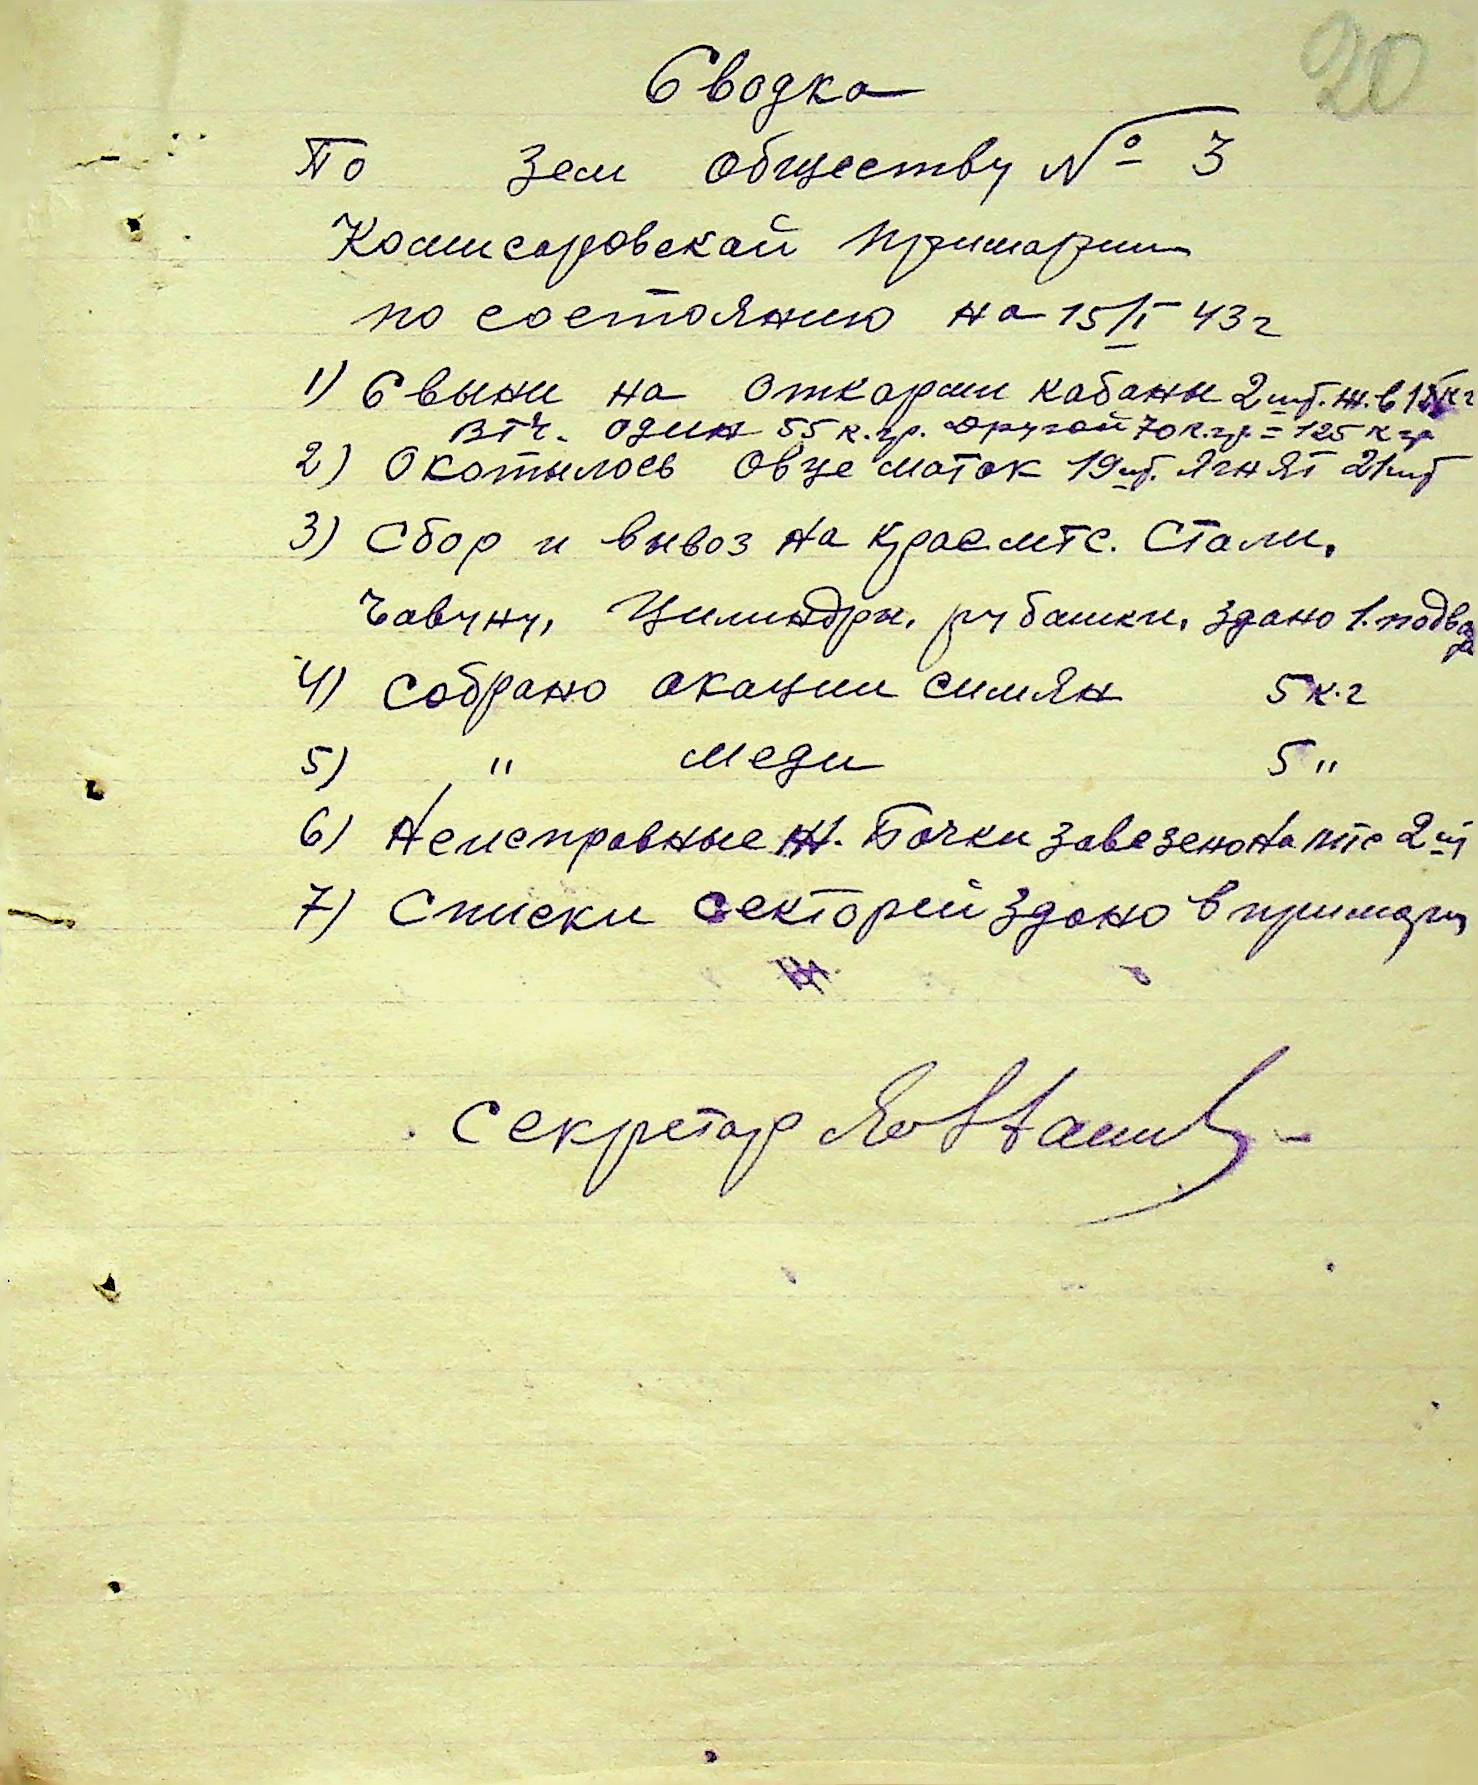 20
Сводка
По Зем обществу № 3
Комисаровской примарии
по состоянию на 15/I 43 г
1) Свыни на откорми кабаны 2 шт. ж. в 1 кг
в т ч. один 55 к. гр. другой 70 к. гр = 125 к гр
2) Окотылось овце маток 19 шт. ягнят 21 шт
3) Сбор и вывоз на Крас. мтс. Стали,
Чавуну, Цилиндры, рубашки, здано 1. подвода
4) Собрано акации симян 5 к. г
5) " меди 5 "
6) Неисправные ж. Бочки завезено на мтс 2 ш
7) Списки секторей здано в примарию
Секретар